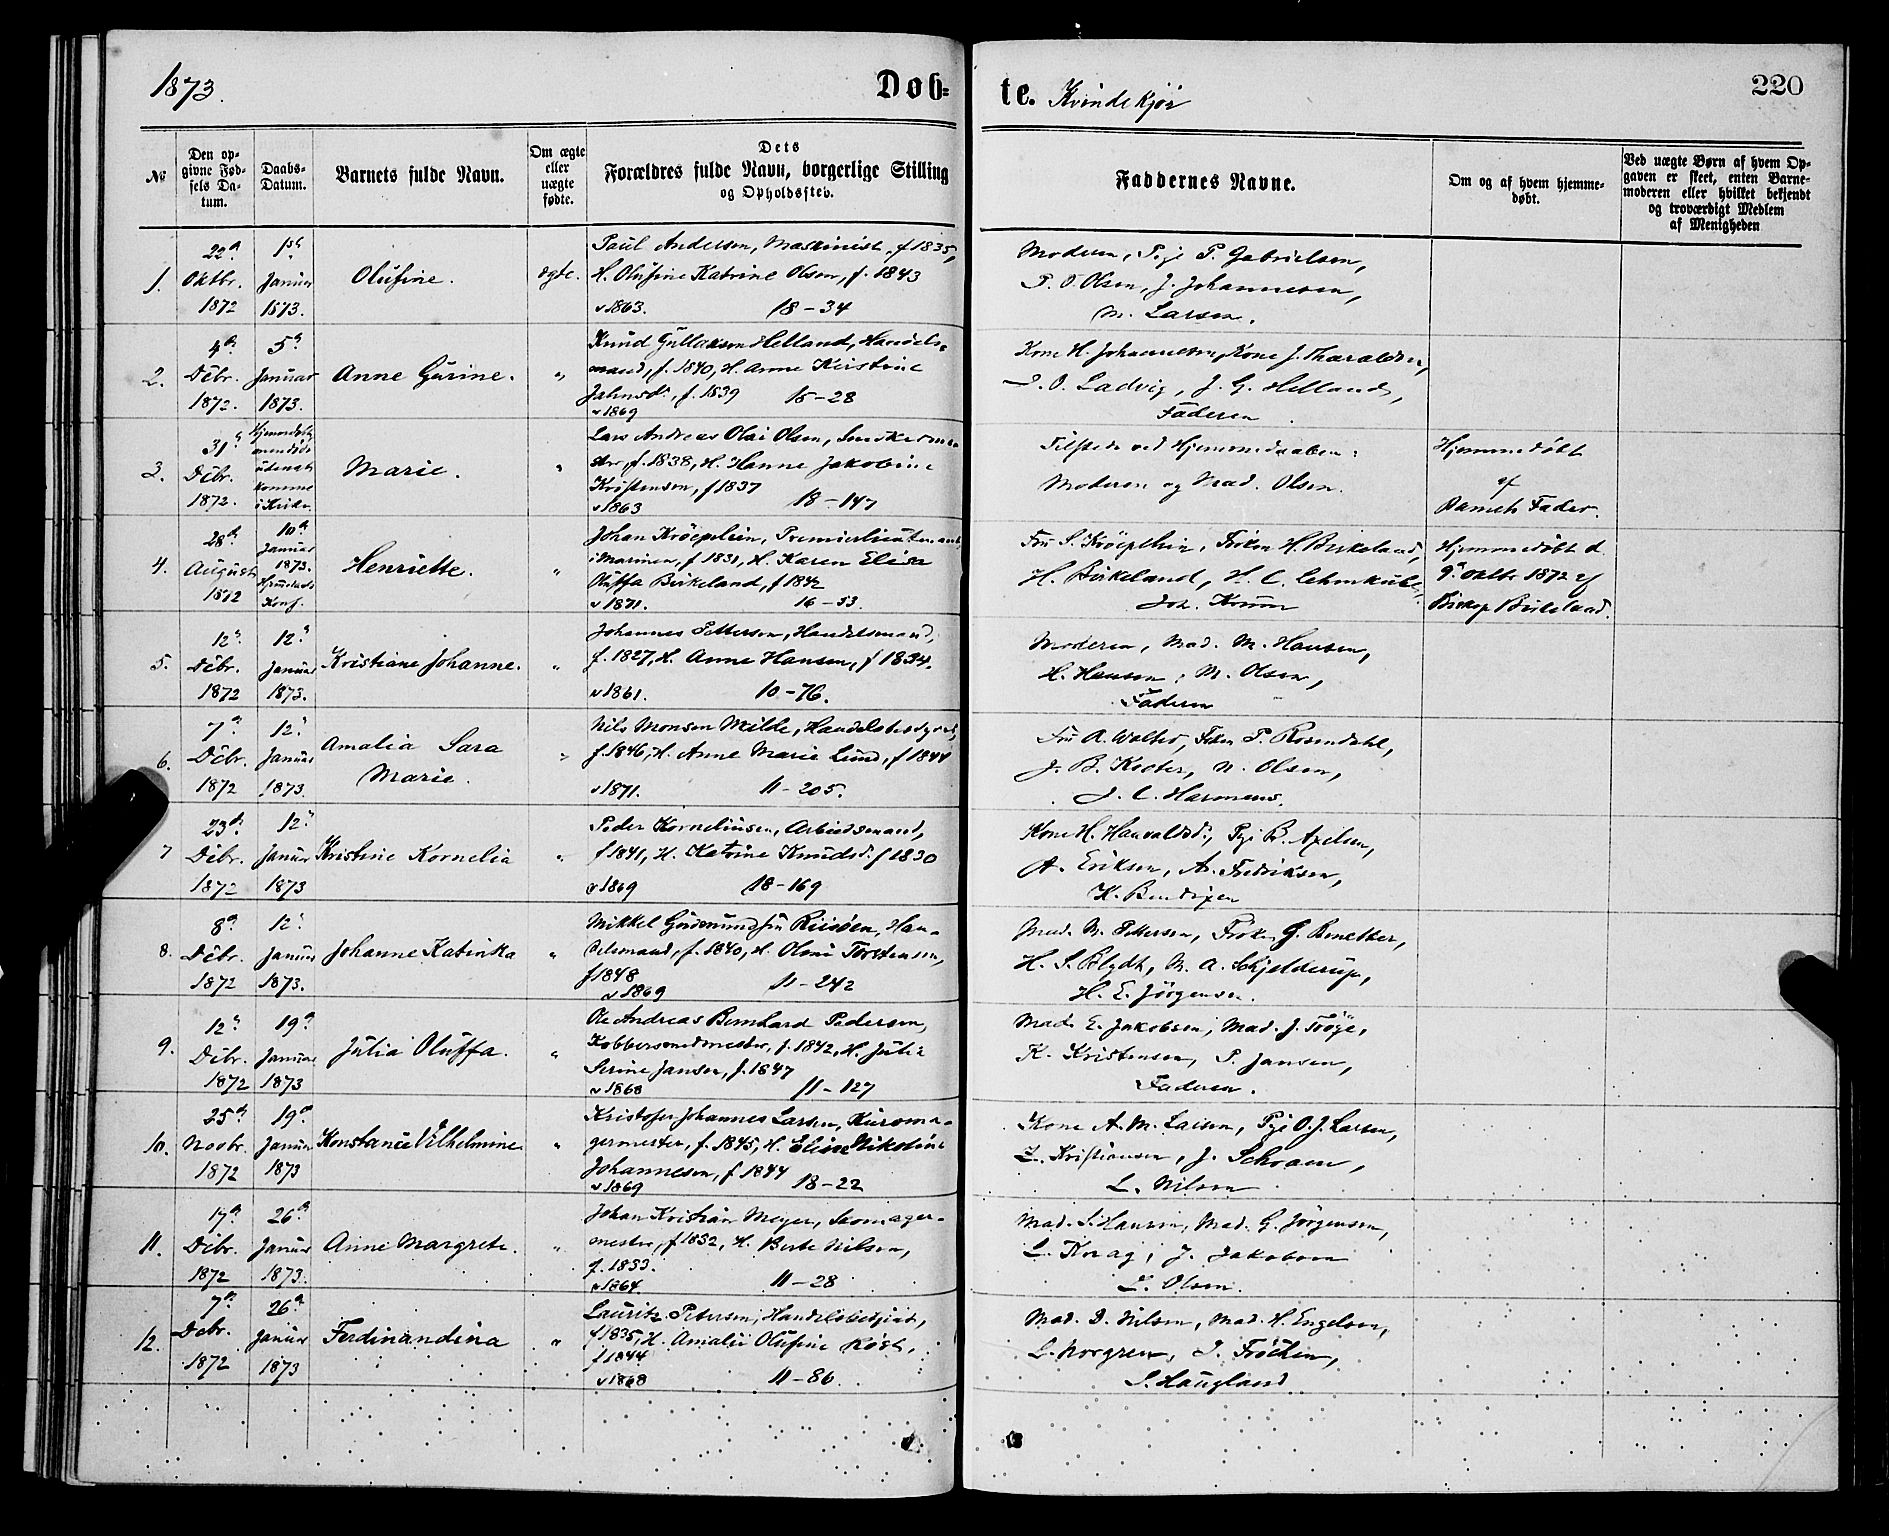 1873.
Døb-
te. Kvindekjøn
220
№
Den op-
givne Fød-
sels Da-
tum.
Daabs-
Datum.
Barnets fulde Navn.
Om ægte
eller
uægte
fødte.
Dets
Forældres fulde Navn, borgerlige Stilling
og Opholdssted.
Faddernes Navne.
Om og af hvem hjemme-
døbt.
Ved uægte Børn af hvem Op-
gaven er skeet, enten Barne-
moderen eller hvilket bekjendt
og troværdigt Medlem
af Menigheden
1.
22
Oktbr.
1872
1
Januar
1873.
Olufine.
ægte.
Paul Andersen, Maskinist, f 1835,
H. Olufine Katrine Olsen, f. 1843
v 1863. 18-34
Moderen, Pige P. Gabrielsen,
P. O. Olsen, J. Johannesen,
M. Larsen.
2.
4
Debr.
1872.
5
Januar
1873.
Anne Gurine.
"
Knud Gullaksen Helland, Handels-
mand, f. 1840, H. Anne Kristine
Jahnsd., f. 1839 15-28
v 1869
Kone H. Johannesen, Kone J. Tharaldsen,
O. Ladvig, J. G. Helland,
Faderen
3.
31
Debr.
1872.
i Kirke.
Marie.
"
Lars Andreas Olai Olsen,
f. 1838, H. Hanne Jakobine
Kristensen, f 1837
v 1863 18-147
Tilstede ved Hjemmedaaben:
Moderen og Mad. Olsen.
Hjemmedøbt
af
Barnets Fader.
4.
28
August
1872
10
Januar
1873.
Konf.
Henriette.
"
Johan Krøepelin, Premierlieutenant
i Marinen, f 1831, H. Karen Elisa
Oluffa Birkeland, f 1842
v 1871. 16-53.
Fru S. Krøepelin, Frøken H. Birkeland,
H. Birkeland, H. C. Lehmkuhl,
Joh. Krum
Hjemmedøbt d.
9 Oktbr 1872 af
Biskop Birkeland.
5.
12
Debr.
1872
12
Januar
1873.
Kristiane Johanne.
"
Johannes Pettersen, Handelsmand,
f. 1827, H. Anne Hansen, f 1834.
v 1861. 10-76.
Moderen, Mad. M. Hansen,
H. Hansen, M. Olsen,
Faderen
6.
7
Debr.
1872
12
Januar
1873.
Amalia Sara
Marie.
"
Nils Monsen Milde, Handelsbetjent,
f 1846, H. Anne Marie Lund, f 1844
v 1871. 11-205.
Fru A. Wolter, Frøken P. Rosendahl,
J. B. Kroter, N. Olsen,
J. C. Harmens.
7
23
Debr.
1872
12
Januar
1873
Kristine Kornelia
"
Peder Korneliusen, Arbeidsmand,
f 1841, H. Katrine Knudsd. f 1830
v 1869 18-169
Kone H. Haavaldsd., Pige B. Axelsen,
A. Eriksen, A. Fredriksen,
K. Bendixen
8.
8
Debr.
1872
12
Januar
1873.
Johanne Katinka
"
Mikkel Gudmundsen Riisøen, Han-
delsmand, f. 1840, H. Oline Torstensen,
f 1848
v 1869 11-242
Mad. M. Pettersen, Frøken G. Bonetker,
H. S. Blydt, M. A. Schjelderup,
H. E. Jørgensen.
9.
12
Debr.
1872
19
Januar
1873
Julia Oluffa.
"
Ole Andreas Bernhard Pedersen,
Kobbersmedmester, f. 1842, H. Julie
Serine Jansen, f. 1847
v 1868 11-127
Mad. E. Jakobsen, Mad. J. Trøye,
K. Kristensen, P. Jansen,
Faderen.
10.
25
Novbr.
1872
19
Januar
1873
Konstance Vilhelmine
"
Kristofer Johannes Larsen, Kursma-
germester, f. 1845, H. Elise Nikoline
Johannesen, f 1844
v 1869 18-22
Kone A. M. Larsen, Pige O. J. Larsen,
L. Kristiansen, J. Schraen,
L. Nilsen
11.
17
Debr.
1872
26
Januar
1873.
Anne Margrete.
"
Johan Kristian Meyer, Skomager-
mester, f 1832, H. Berte Nilsen,
f. 1833.
v 1864. 11-28
Mad. S. Hansen, Mad. G. Jørgensen,
L. Korag, J. Jakobsen
L. Olsen.
12.
7
Debr.
1872
26
Januar
1873
Ferdinandina
"
Lauritz Petersen, Handelsbetjent,
f 1835, H. Amalie Olufine Røst,
f 1844
v 1868 11-86.
Mad. D. Nilsen, Mad. H. Engelsen,
L. Norgren, J. Frøchen,
S. Haugland